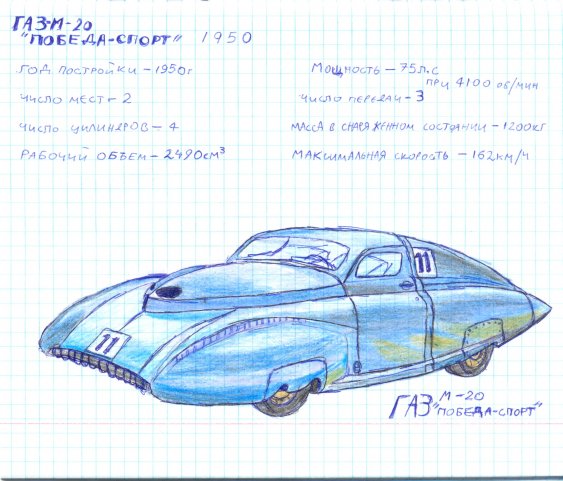 ГАЗ-М-20
"ПОБЕДА-СПОРТ" 1950
ГОД ПОСТРОЙКИ - 1950г
ЧИСЛО МЕСТ - 2
ЧИСЛО ЦИЛИНДРОВ - 4
РАБОЧИЙ ОБЪЕМ - 2490см³
МОЩНОСТЬ - 75 л.с
ПРИ 4100 об/мин
ЧИСЛО ПЕРЕДАЧ - 3
МАССА В СНАРЯЖЕННОМ СОСТОЯНИИ - 1200кг
МАКСИМАЛЬНАЯ СКОРОСТЬ - 162км/ч
11
11
ГАЗ М-20
"ПОБЕДА-СПОРТ"